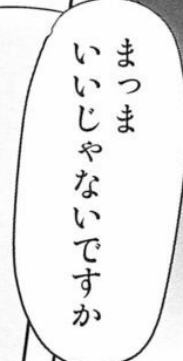 まつま
いいじゃないですか